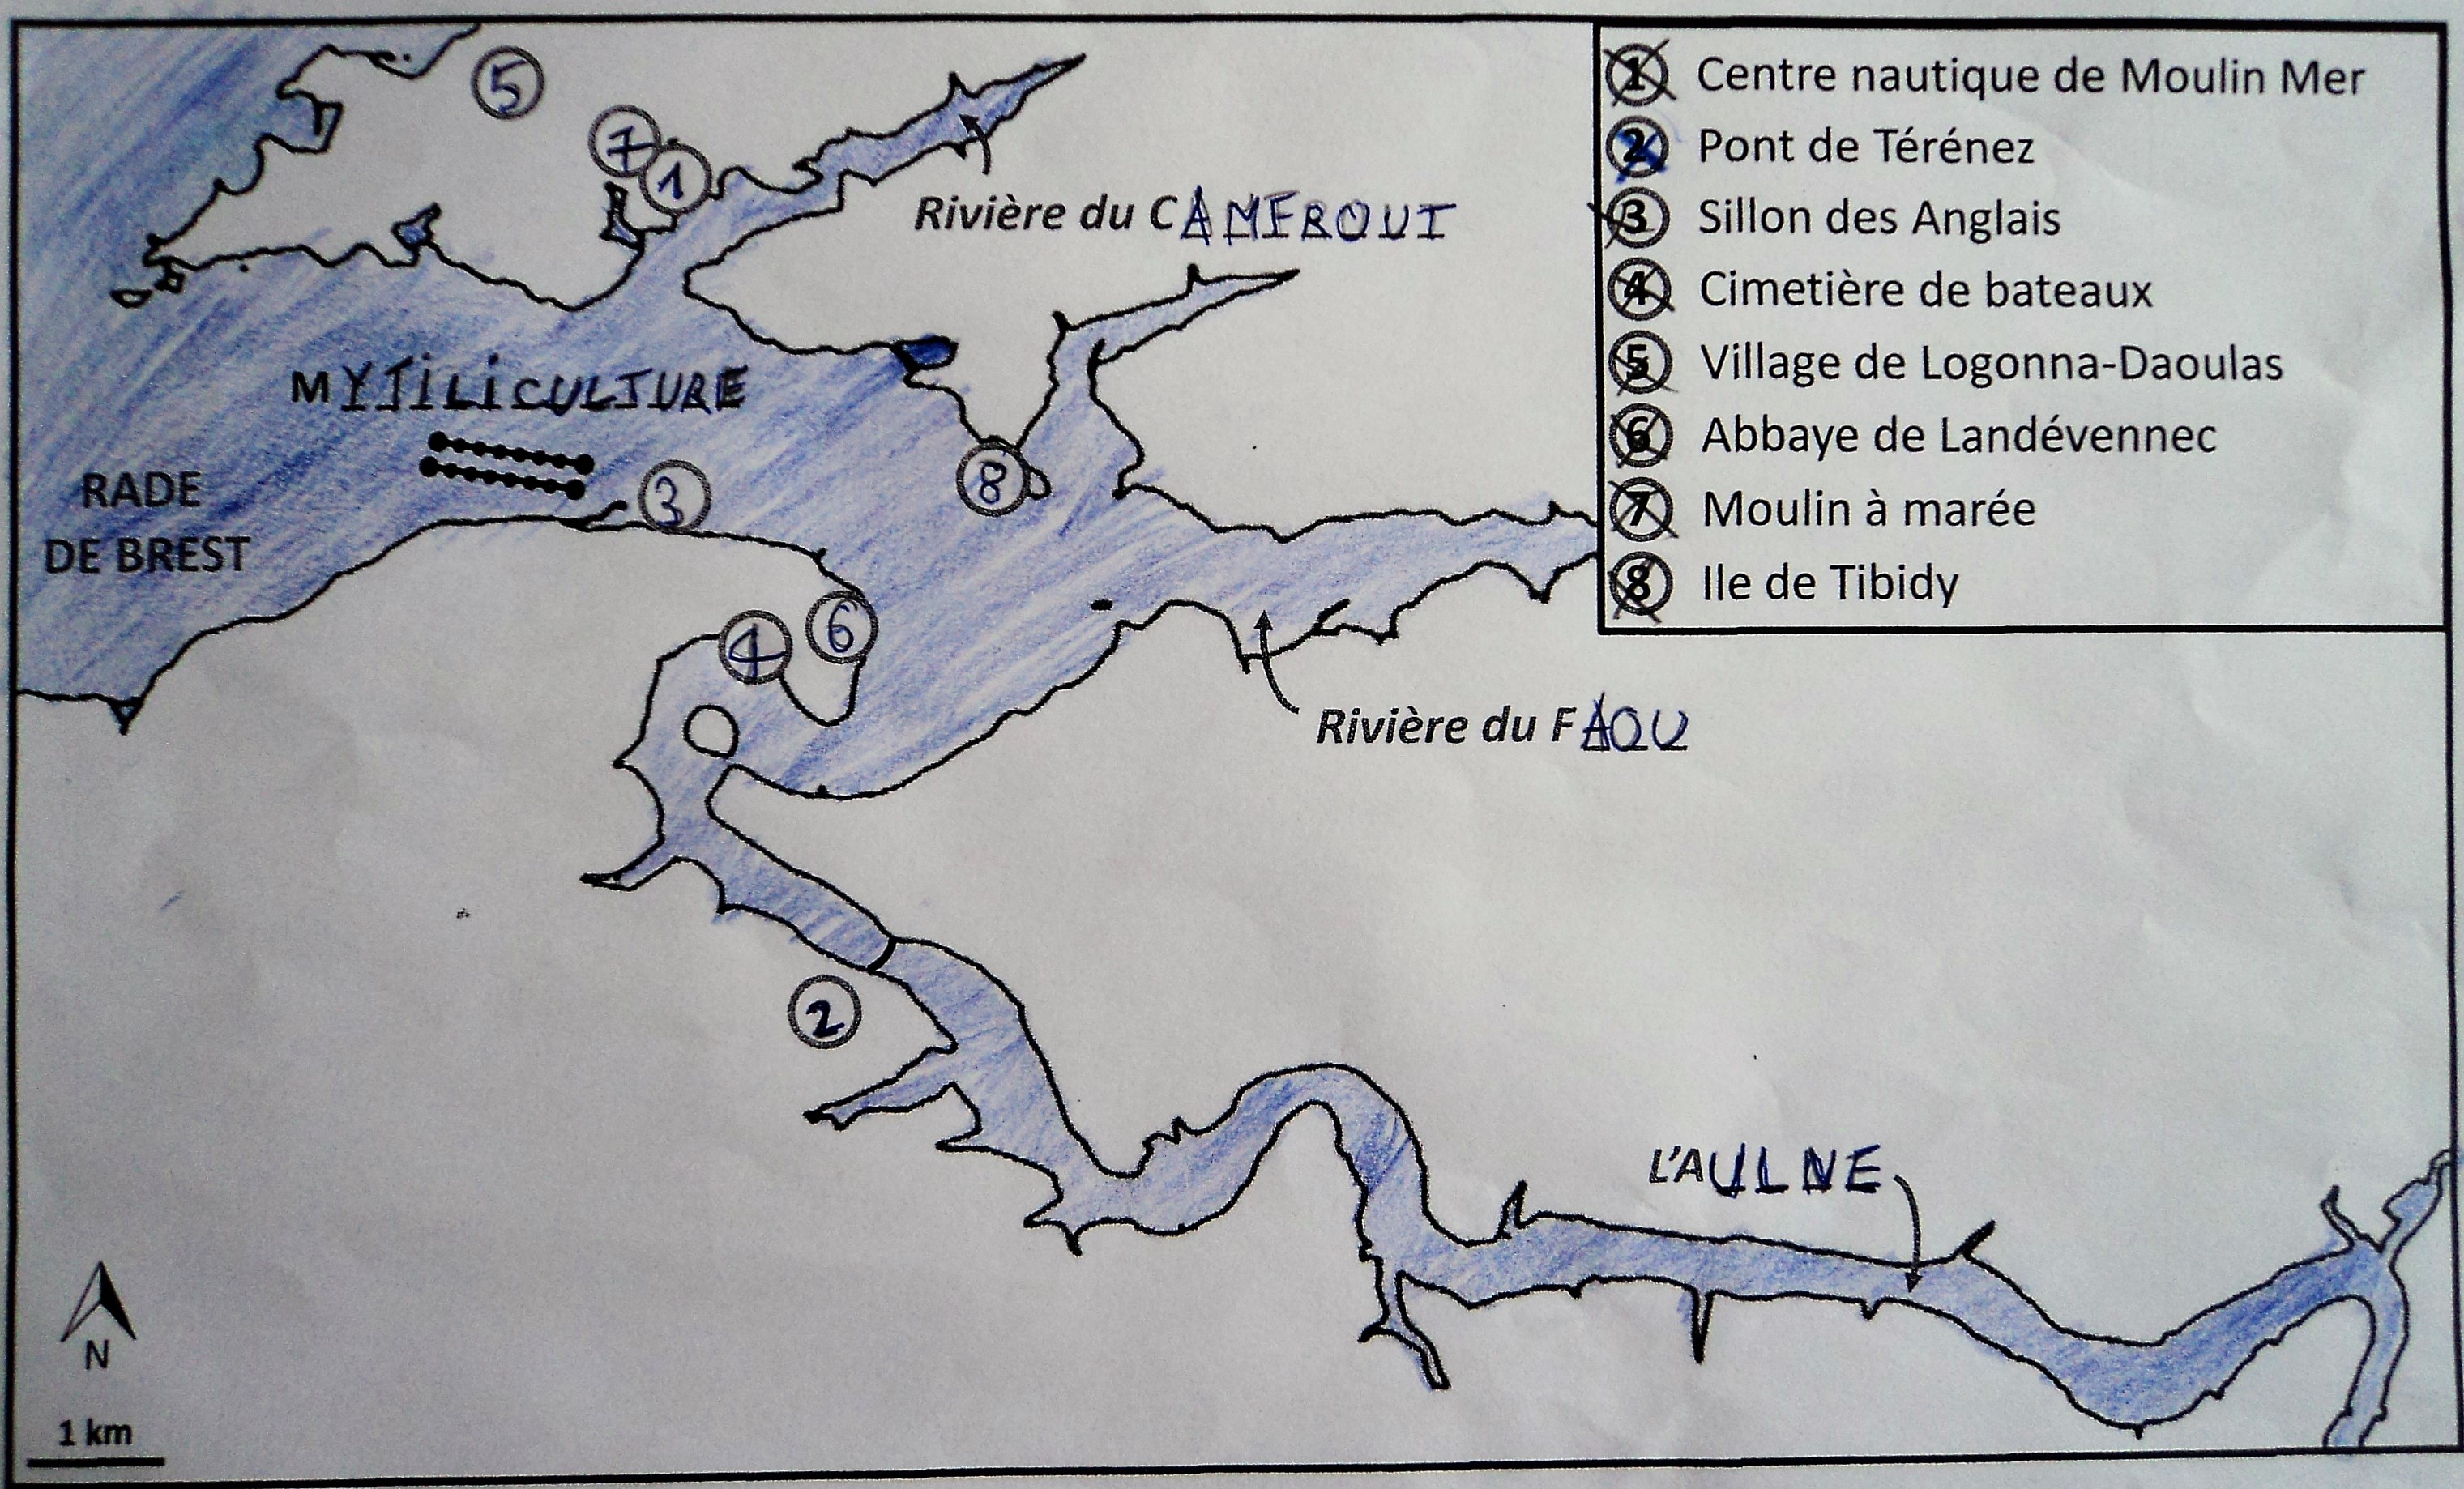 5
7
1
Rivière du CAMEROUI
MYTILICULTURE
RADE
DE BREST
3
8
4
6
Rivière du FAOU
2
L'AULNE
N
1 km
1 Centre nautique de Moulin Mer
2 Pont de Térénez
3 Sillon des Anglais
4 Cimetière de bateaux
5 Village de Logonna-Daoulas
6 Abbaye de Landévennec
7 Moulin à marée
8 Ile de Tibidy